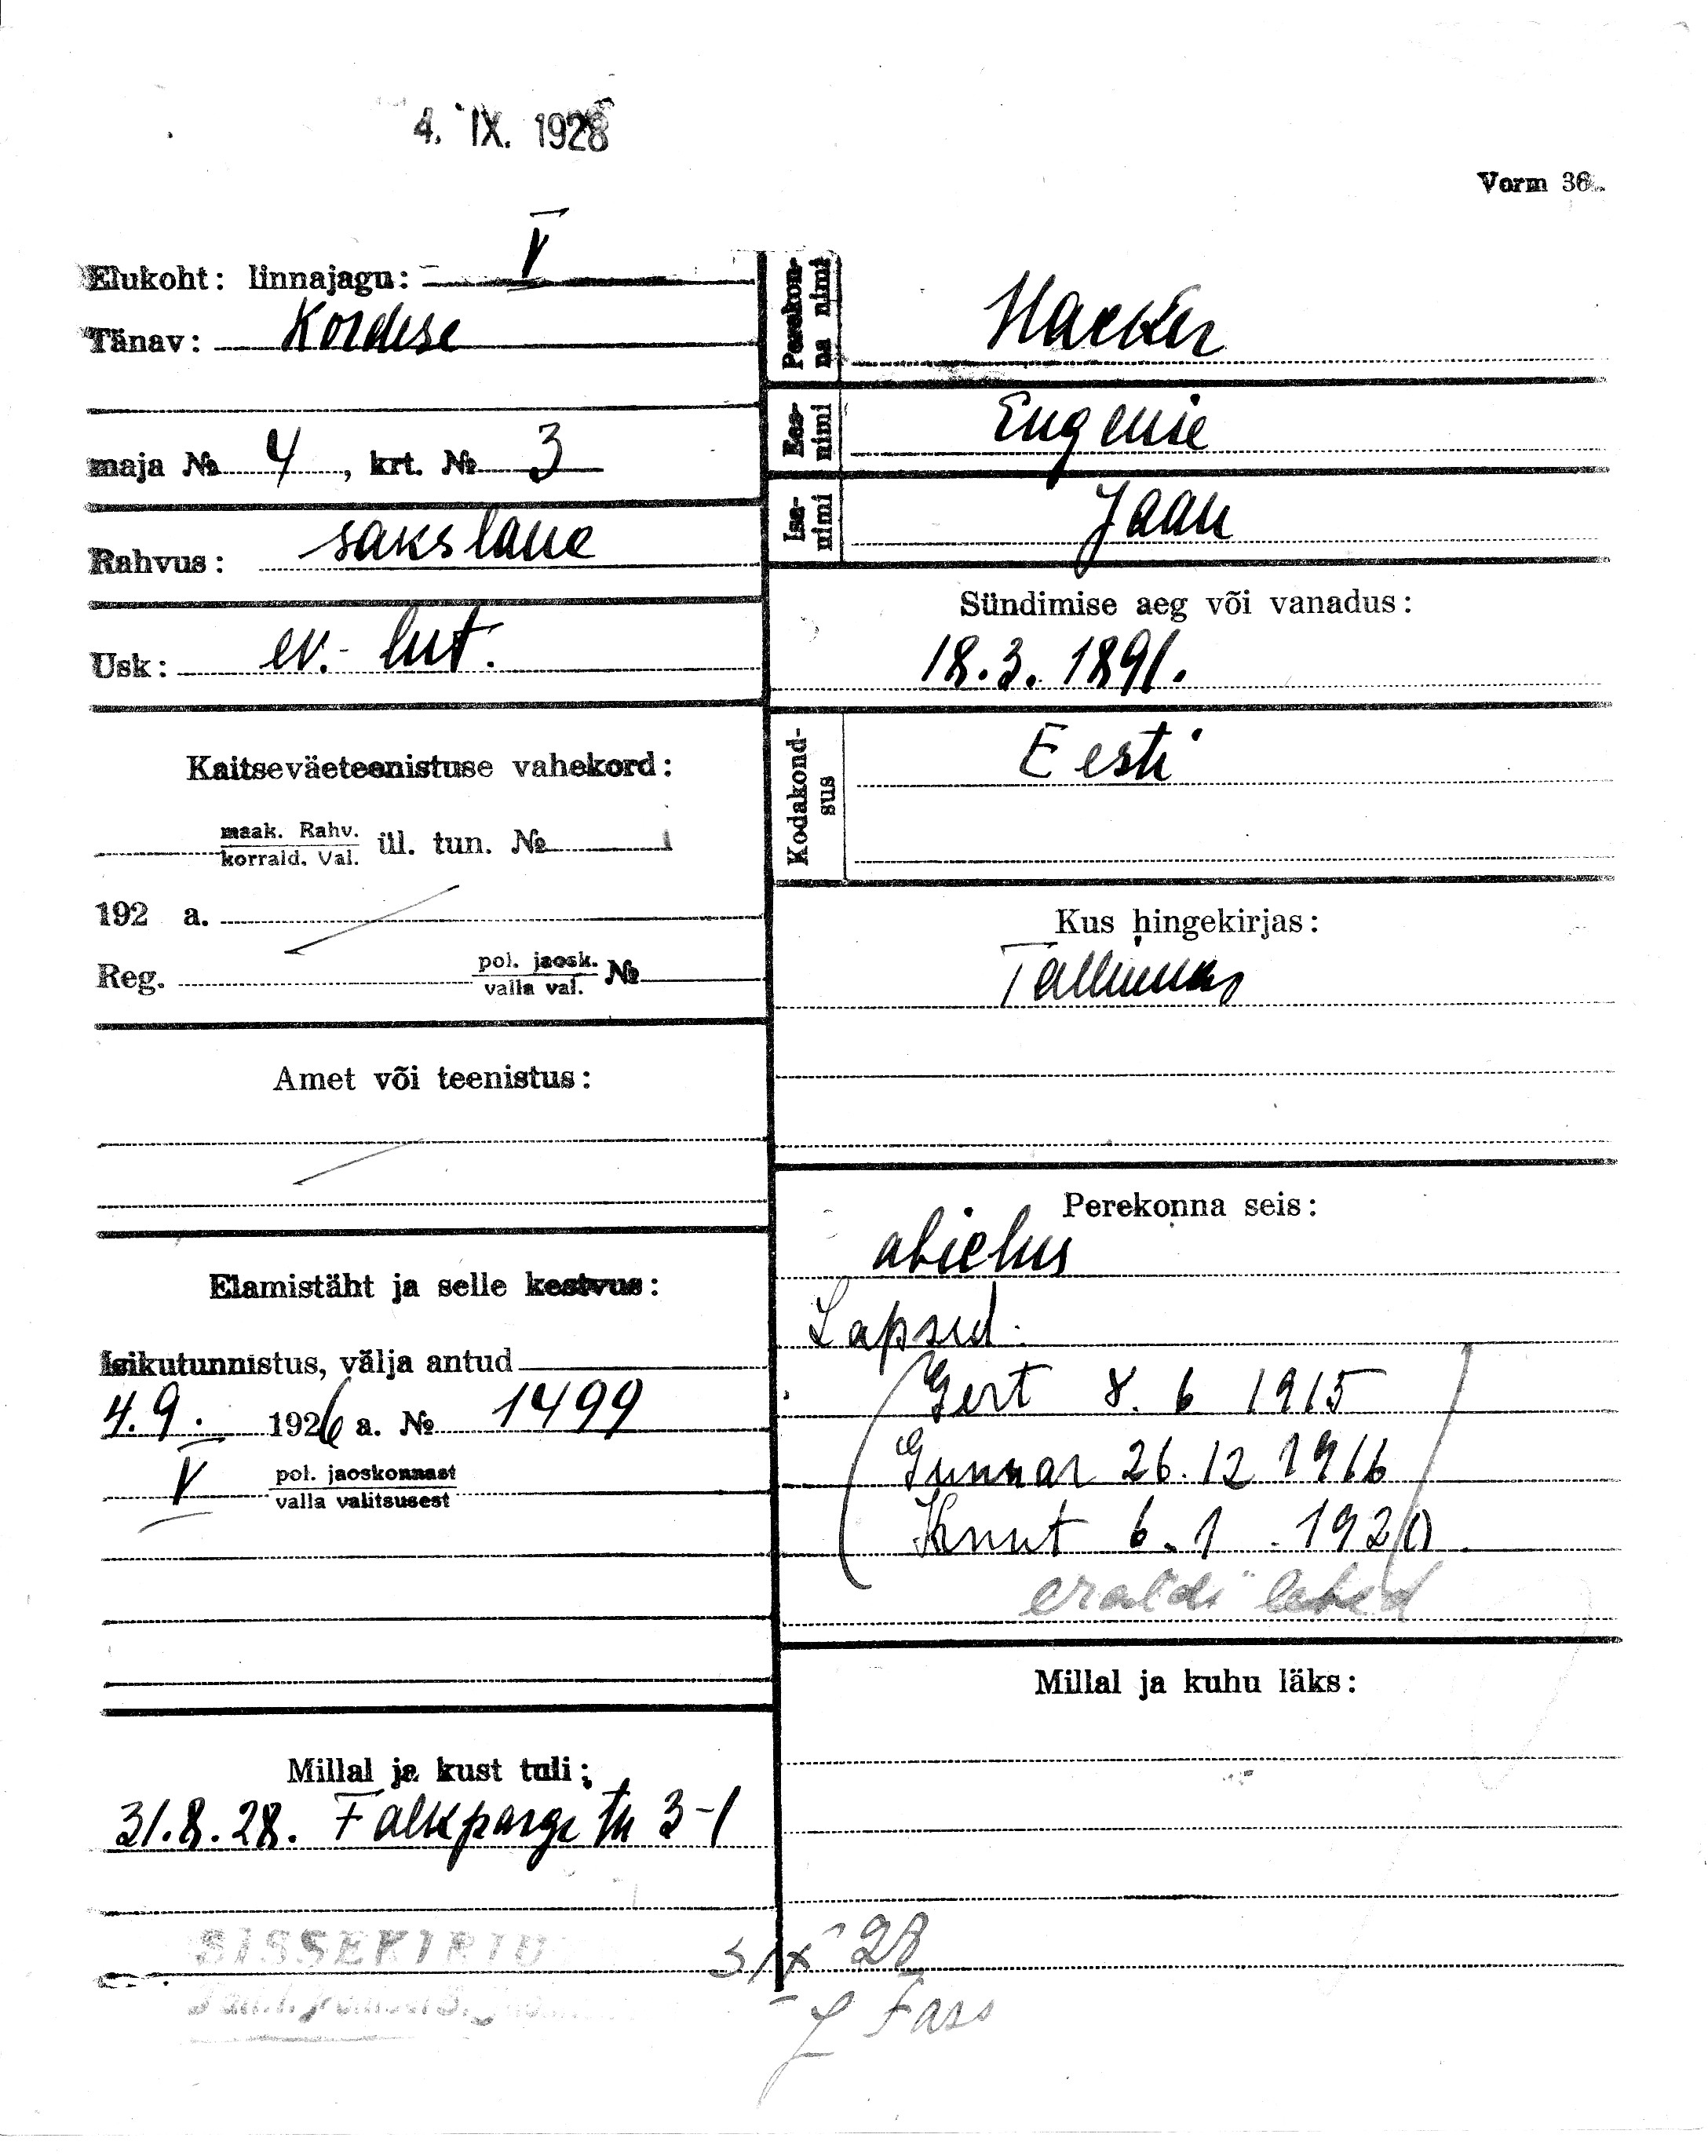 4. IX. 1928
Vorm 36.
Elukoht: linnajagu: V
Tänav: Kordese
maja № 4, krt. № 3
Rahvus: sakslane
Usk: ev.- lut.
Kaitseväeteenistuse vahekord:
maak. Rahv.
korrald. Val. ül. tun. №
192 a.
Reg. pol. jaosk.
valla val. №
Amet või teenistus:
Elamistäht ja selle kestvus:
Isikutunnistus, välja antud
4.9. 1926 a. № 1499
V pol. jaoskonnast
valla valitsusest
Millal ja kust tuli:
31.8.28. Falkpargi tn 3-1
SISSEKIRJU
Perekon-
na nimi
Haecker
Ees-
nimi
Eugenie
Isa-
nimi
Jaan
Sündimise aeg või vanadus:
18.3.1891.
Kodakond-
sus
Eesti
Kus hingekirjas:
Tallinnas
Perekonna seis:
abielus
Lapsed:
Gert 8. 6 1915
Gunnar 26. 12 1916
Knut 6. 1. 1920
eraldi lehed
Millal ja kuhu läks:
28